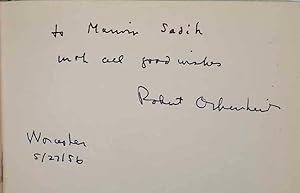 to Marvin Sadik
with all good wishes
Robert
Worcester
5/27/56